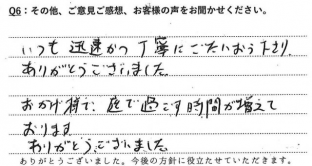 Q6：その他、ご意見ご感想、お客様の声をお聞かせください。
いつも迅速かつ丁寧にごたいおう下さり
ありがとうございました。
おかげ様で、庭で過ごす時間が増えて
おります
ありがとうございました。
ありがとうございました。今後の方針に役立たせていただきます。